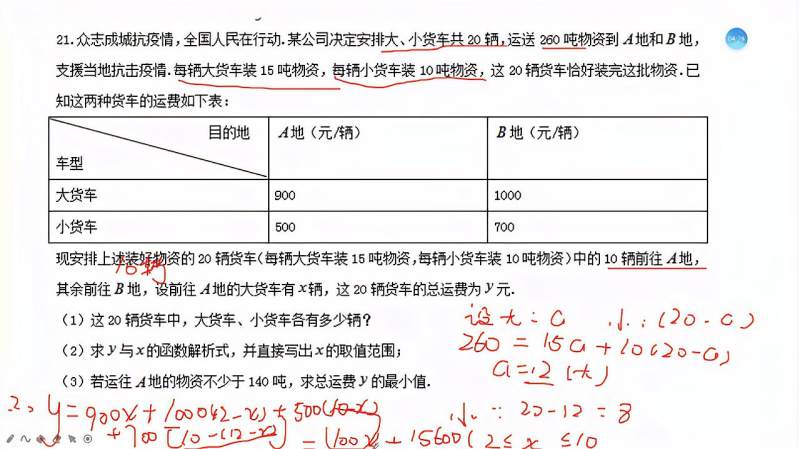 21.众志成城抗疫情,全国人民在行动.某公司决定安排大、小货车共20辆,运送260吨物资到A地和B地,
支援当地抗击疫情.每辆大货车装15吨物资,每辆小货车装10吨物资,这20辆货车恰好装完这批物资.已
知这两种货车的运费如下表:
目的地
车型
A地(元/辆)
B地(元/辆)
大货车
900
1000
小货车
500
700
现安排上述装好物资的20辆货车(每辆大货车装15吨物资,每辆小货车装10吨物资)中的10辆前往A地,
10辆
其余前往B地,设前往A地的大货车有x辆,这20辆货车的总运费为y元.
(1)这20辆货车中,大货车、小货车各有多少辆?
设大:a 小:(20-a)
(2)求y与x的函数解析式,并直接写出x的取值范围;
260=15a+10(20-a)
a=12(大)
(3)若运往A地的物资不少于140吨,求总运费y的最小值.
小:20-12=8
y=900x+1000(12-x)+500(10-x)
+700[10-(12-x)]=100x+15600(2≤x≤10